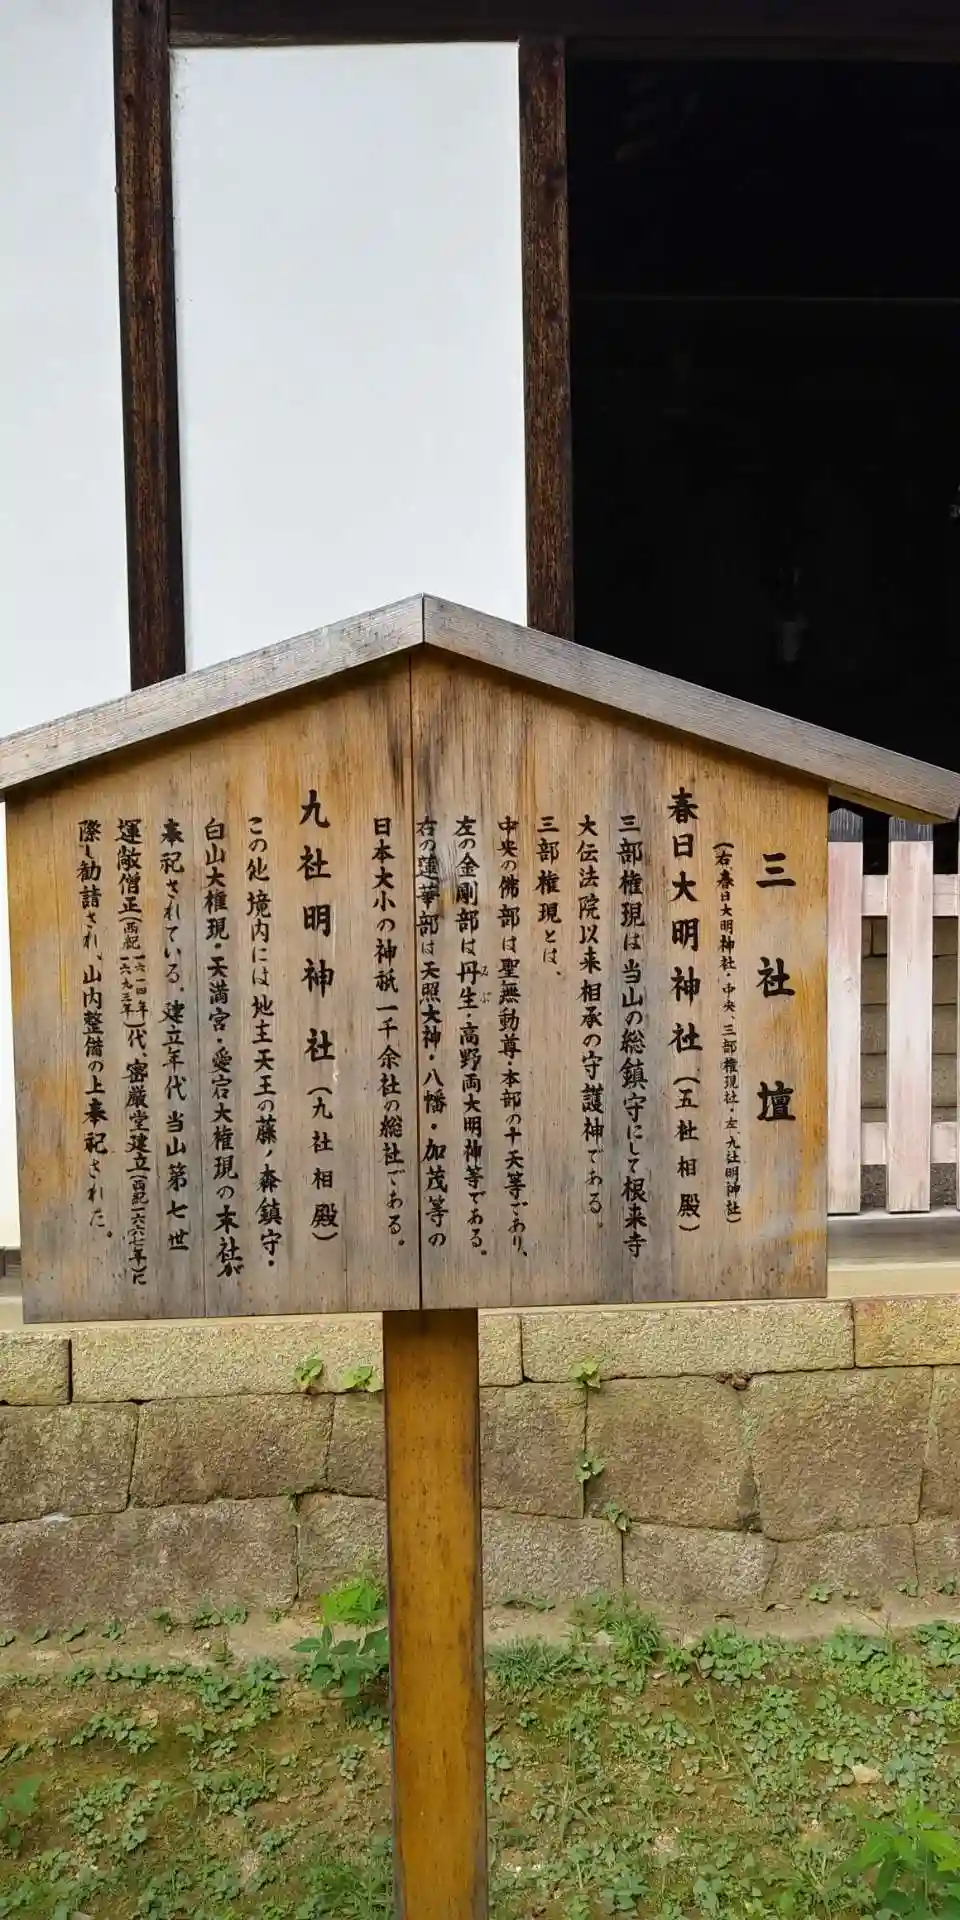 三社壇
(右、春日大明神社・中央、三部権現社・左、九社明神社)
春日大明神社(五社相殿)
三部権現は当山の総鎮守にして根来寺
大伝法院以来相承の守護神である。
三部権現とは、
中央の佛部は聖無動尊・本部の十天等であり、
左の金剛部は丹生・高野両大明神等である。
にぶ
右の蓮華部は天照大神・八幡・加茂等の
日本大小の神祇一千余社の総社である。
九社明神社(九社相殿)
この他境内には地主天王の藤ノ森鎮守・
白山大権現・天満宮・愛宕大権現の末社が
奉祀されている。建立年代当山第七世
運敞僧正(西紀一六一四年一六九三年)代、密厳堂建立(西紀一六六七年)に
際し勧請され、山内整備の上奉祀された。